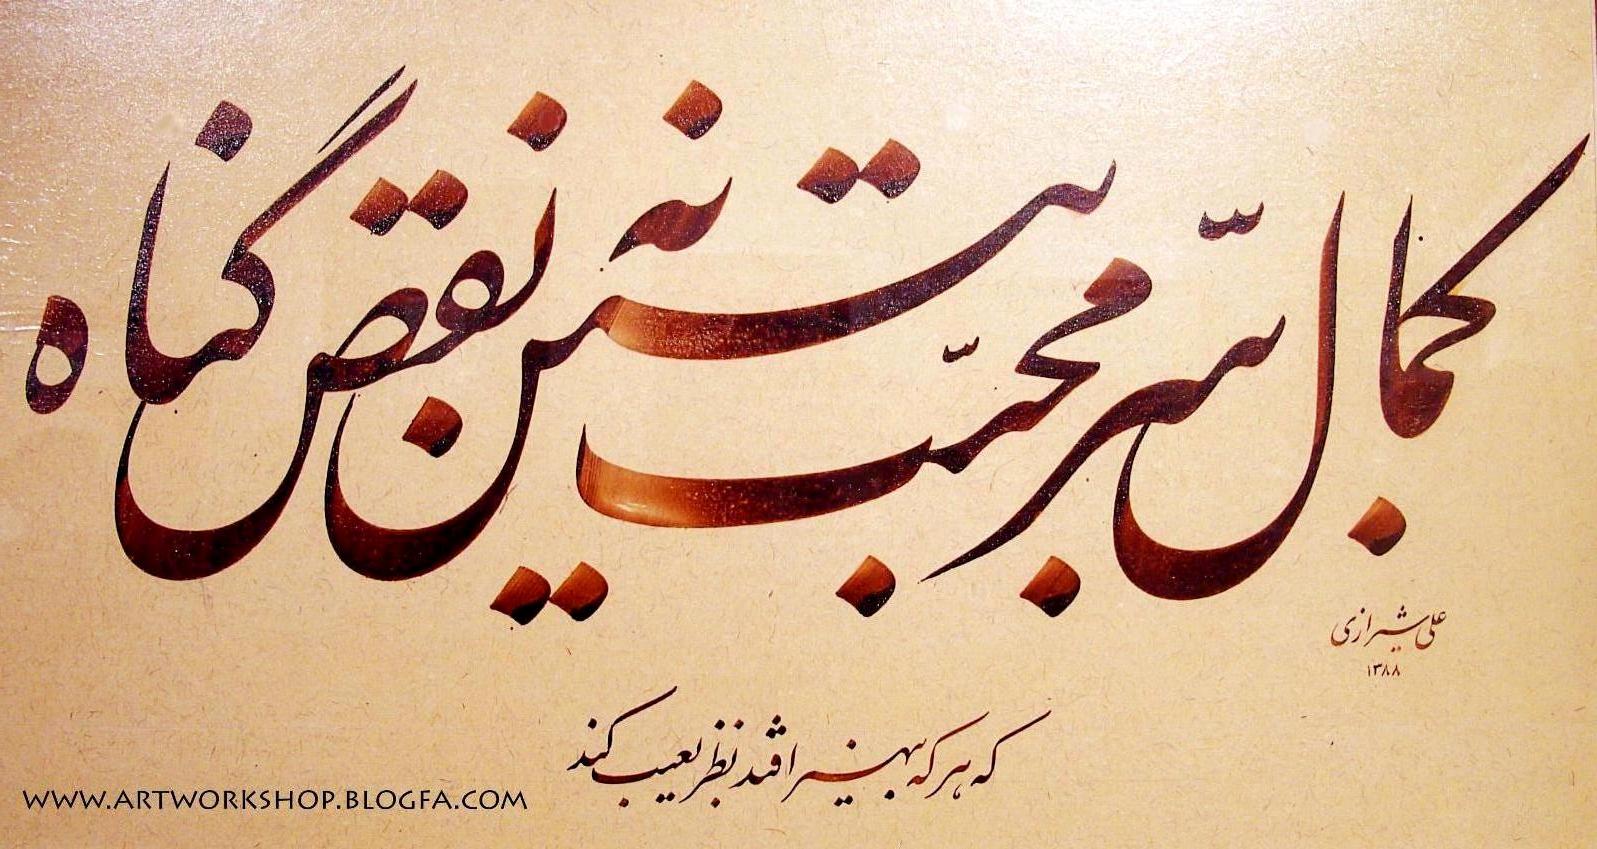 کمال سرّ محبّت ببین نه نقص گناه
علی شیرازی
۱۳۸۸
که هر که بی‌هنر افتد نظر بعیب کند
WWW.ARTWORKSHOP.BLOGFA.COM